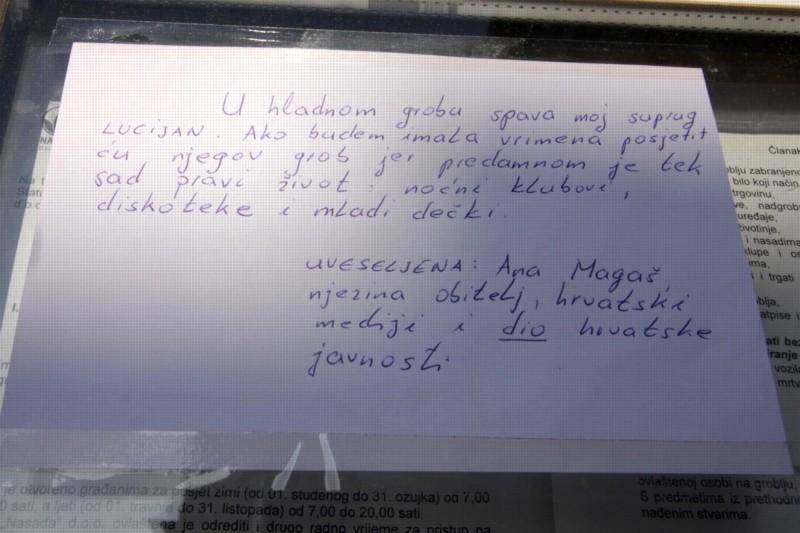 U hladnom grobu spava moj suprug
LUCIJAN. Ako budem imala vrimena posjetit
ću njegov grob jer predamnom je tek
sad pravi život: noćni klubovi,
diskoteke i mladi dečki.
UVESELJENA: Ana Magaš,
njezina obitelj, hrvatski
mediji i dio hrvatske
javnosti
Članak
oblju zabranjeno
bilo koji način
trgovinu,
nadgrob
uređaje,
i nasadima
klupe i os
i trgati
ati bez
vozila
mrtv
je otvoreno građanima za posjet zimi (od 01. studenog do 31. ožujka) od 7,00
0 sati, a ljeti (od 01. travnja do 31. listopada) od 7,00 do 20,00 sati.
„Nasada" d.o.o. ovlaštena je odrediti i drugo radno vrijeme za pristup na
ovlaštenoj osobi na groblju.
S predmetima iz prethodn
nađenim stvarima.